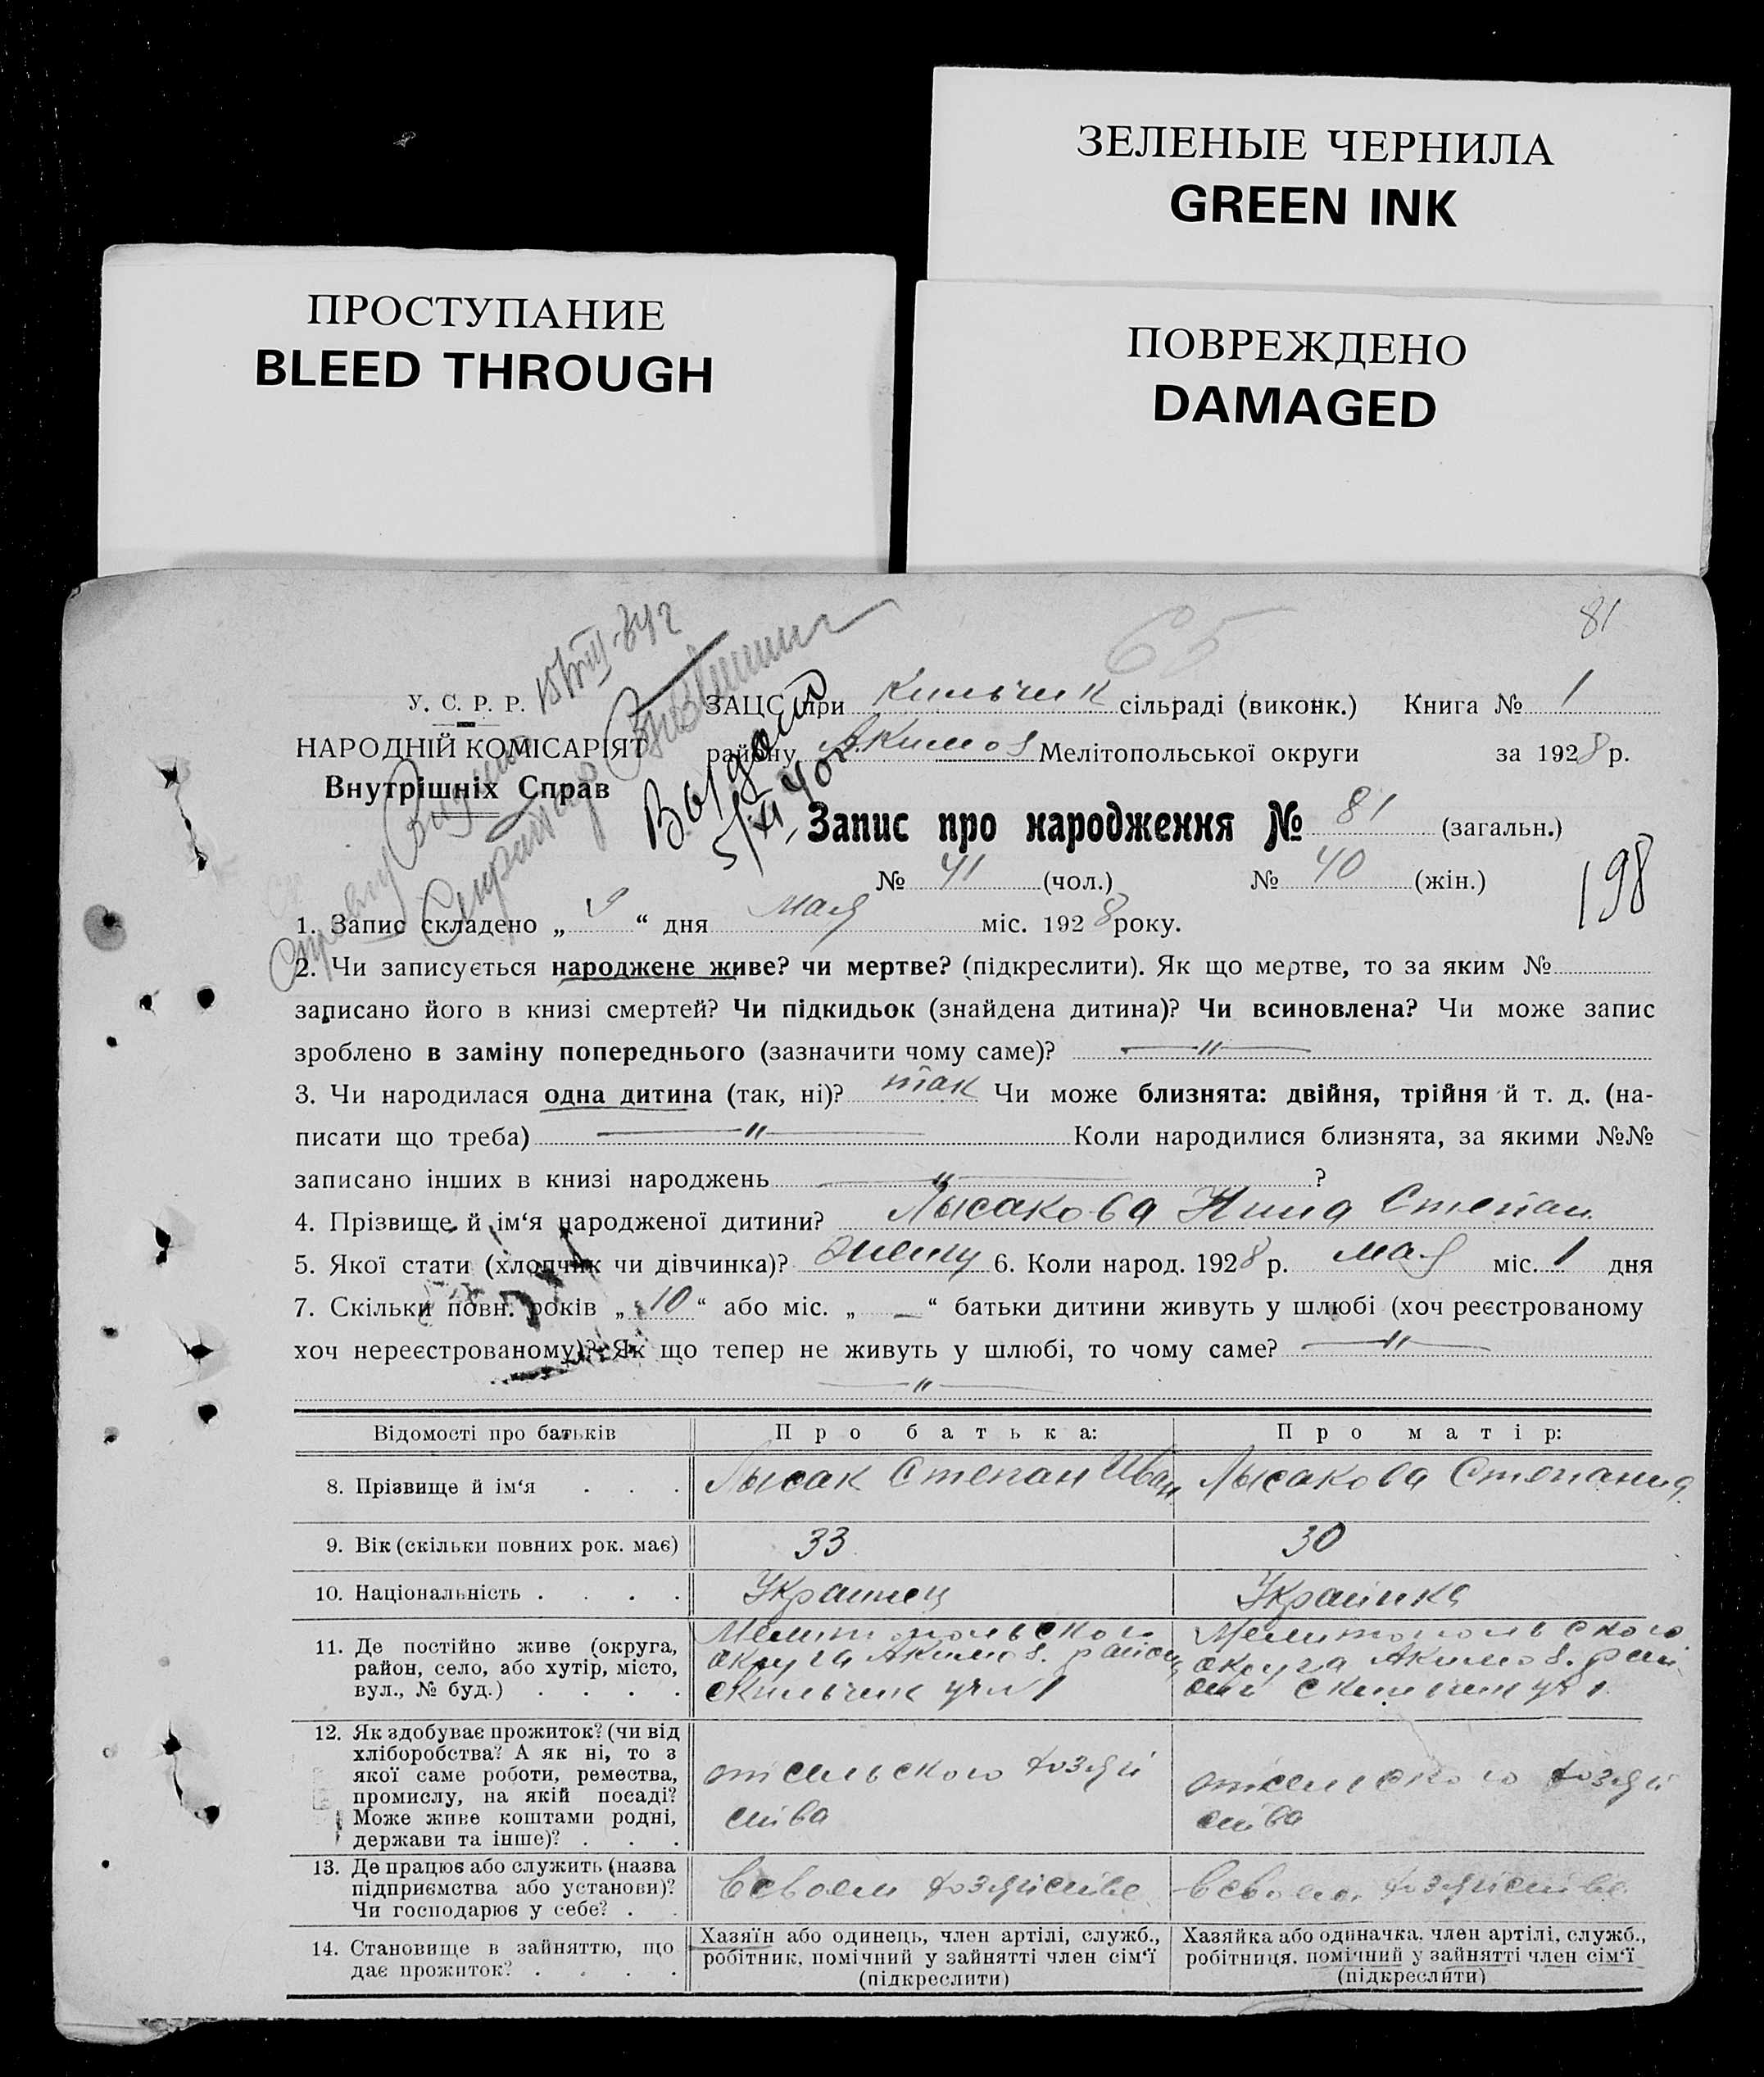 ЗЕЛЕНЫЕ ЧЕРНИЛА
GREEN INK
ПРОСТУПАНИЕ
BLEED THROUGH
ПОВРЕЖДЕНО
DAMAGED
81
65
У. С. Р. Р.
НАРОДНІЙ КОМІСАРІЯТ
Внутрішніх Справ
Выдан
ЗАЦС при Кильчик сільраді (виконк.) Книга № 1
району Акимов Мелітопольської округи за 1928 р.
Запис про народження № 81 (загальн.)
№ 41 (чол.) № 40 (жін.)
198
1. Запис складено „ “ дня мая міс. 1928 року.
2. Чи записується народжене живе? чи мертве? (підкреслити). Як що мертве, то за яким №
записано його в книзі смертей? Чи підкидьок (знайдена дитина)? Чи всиновлена? Чи може запис
зроблено в заміну попереднього (зазначити чому саме)? —"—
3. Чи народилася одна дитина (так, ні)? так Чи може близнята: двійня, трійня й т. д. (на-
писати що треба) —"— Коли народилися близнята, за якими №№
записано інших в книзі народжень —"— ?
4. Прізвище й ім‘я народженої дитини? Лысакова Нина Степан.
5. Якої стати (хлопчик чи дівчинка)? 6. Коли народ. 1928 р. мая міс. 1 дня
7. Скільки повн. років „10“ або міс. „—“ батьки дитини живуть у шлюбі (хоч реєстрованому
хоч нереєстрованому)? Як що тепер не живуть у шлюбі, то чому саме? —"—
—"—
Відомості про батьків Про батька: Про матір:
8. Прізвище й ім‘я . . . Лысак Степан Иван Лысакова Степанида
9. Вік (скільки повних рок. має) 33 30
10. Національність . . . . Украинец Украинка
11. Де постійно живе (округа,
район, село, або хутір, місто,
вул., № буд.) . . . .
Мелитопольского
округа Акимов. район
с Кильчик уч № 1
Мелитопольского
округа Акимов. рай
она с Кильчик уч 1
12. Як здобуває прожиток? (чи від
хліборобства? А як ні, то з
якої саме роботи, ремества,
промислу, на якій посаді?
Може живе коштами родні,
держави та інше)? . . .
от сельского хозяй
ства
от сельского хозяй
ства
13. Де працює або служить (назва
підприємства або установи)?
Чи господарює у себе? . .
В своем хозяйстве
В своем хозяйстве
14. Становище в зайняттю, що
дає прожиток? . . . .
Хазяїн або одинець, член артілі, служб.,
робітник, помічний у зайнятті член сім‘ї
(підкреслити)
Хазяйка або одиначка, член артілі, служб.,
робітниця, помічний у зайнятті член сім‘ї
(підкреслити)